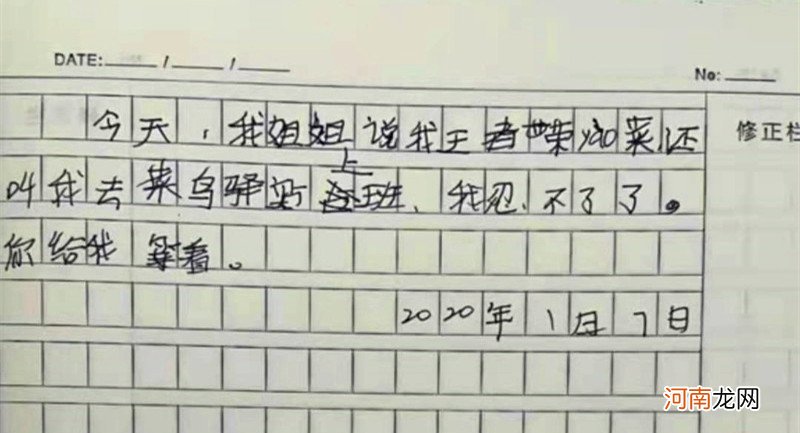 DATE: / /
No:
今天,我姐姐说我王者荣耀菜还
修正栏
叫我去菜鸟驿站上班、我忍不了了。
你给我等着。
2020年1月7日
河南龙网